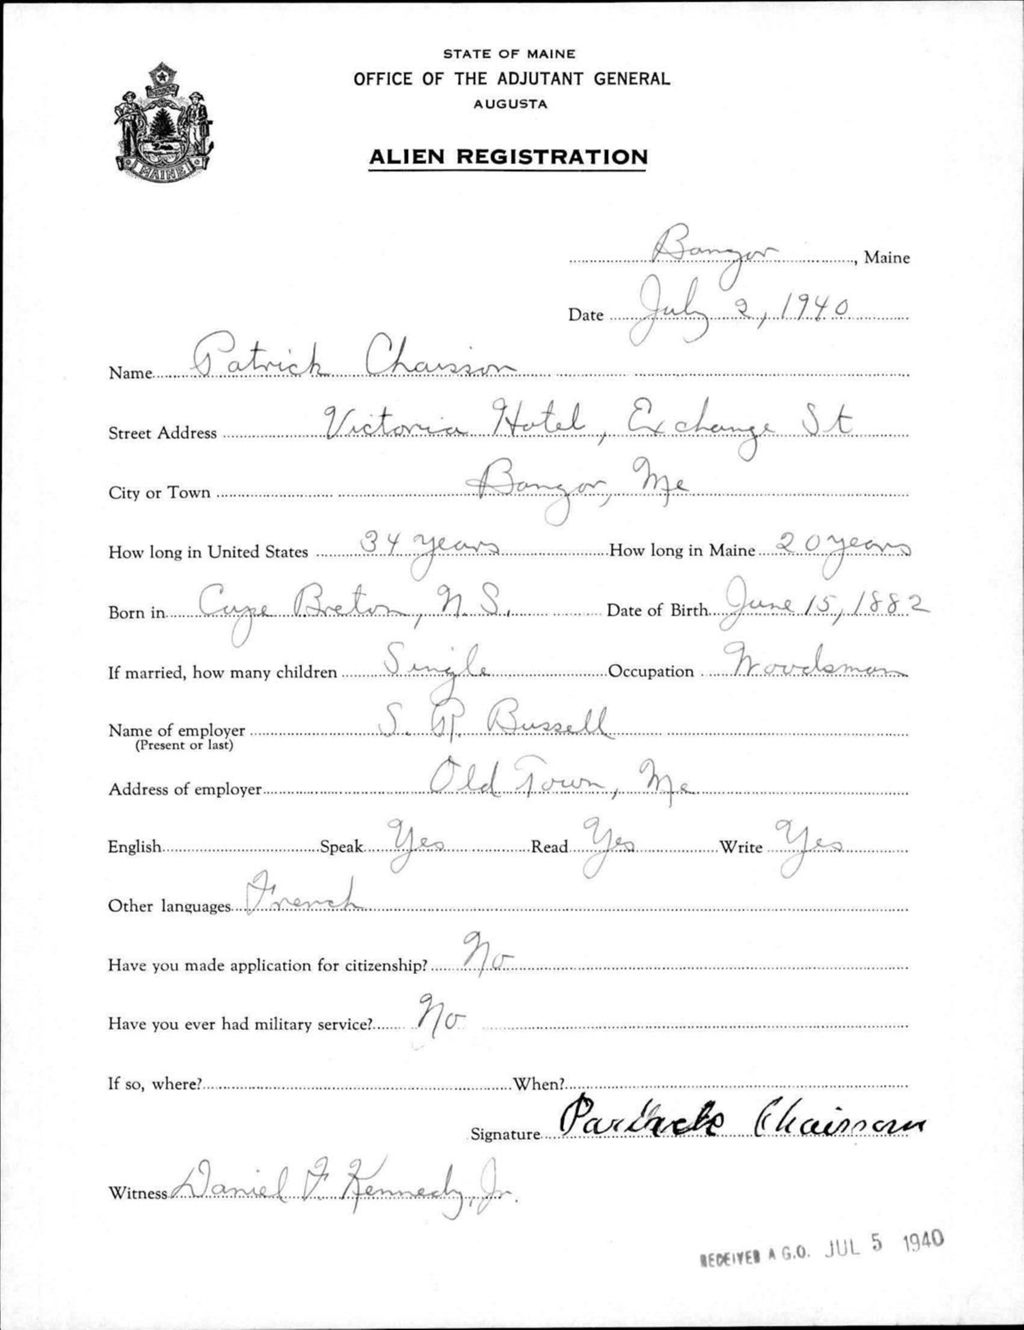 STATE OF MAINE
OFFICE OF THE ADJUTANT GENERAL
AUGUSTA
ALIEN REGISTRATION
MAINE
Bangor, Maine
Date July 2, 1940
Name Patrick Chaisson
Street Address Victoria Hotel, Exchange St
City or Town Bangor, Me
How long in United States 34 years How long in Maine 20 years
Born in Cape Breton, N.S. Date of Birth June 15, 1882
If married, how many children Single Occupation Woodsman
Name of employer S. R. Bussell
(Present or last)
Address of employer Old Town, Me
English Speak Yes Read Yes Write Yes
Other languages French
Have you made application for citizenship? No
Have you ever had military service? No
If so, where? When?
Signature Chaisson
Witness Daniel F. Kennedy, Jr.
RECEIVED A.G.O. JUL 5 1940